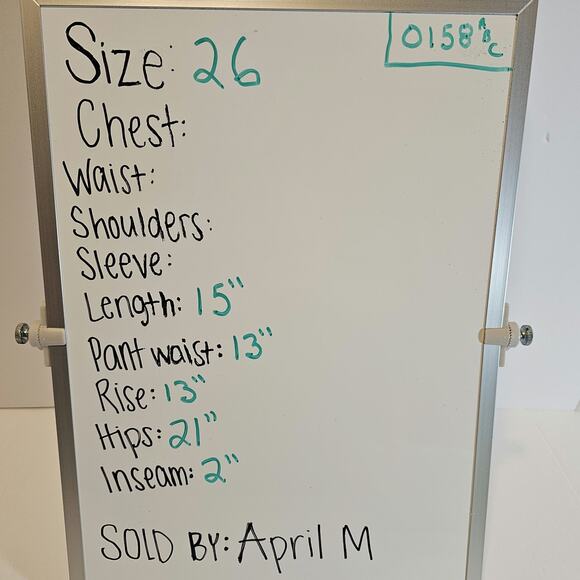 Size: 26
0158 A B C
Chest:
Waist:
Shoulders:
Sleeve:
Length: 15"
Pant waist: 13"
Rise: 13"
Hips: 21"
Inseam: 2"
SOLD BY: April M